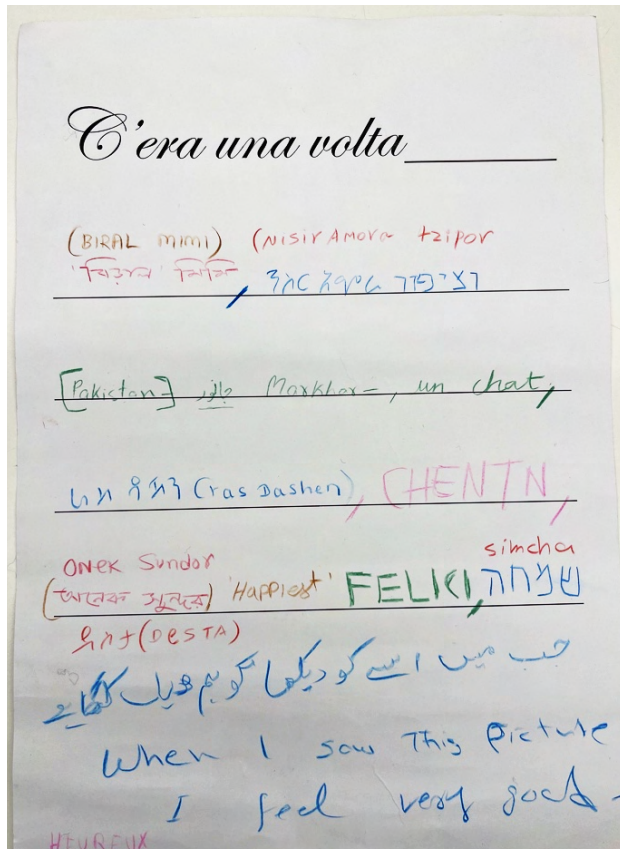 C'era una volta
(BIRAL MIMI) (NISIR AMORA tzipor
বিড়াল মিমি, ንስር አሞራ ציפור
[Pakistan] Markhor-, un chat,
ራስ ዳሸን (ras Dashen), CHENTN,
ONEK Sundor simcha
(অনেক সুন্দর) 'Happiest' FELICI, שמחה
ደስታ (DESTA)
جب میں اسے کو دیکھا تو ہم
When I saw This picture
I feel very good-
HEUREUX